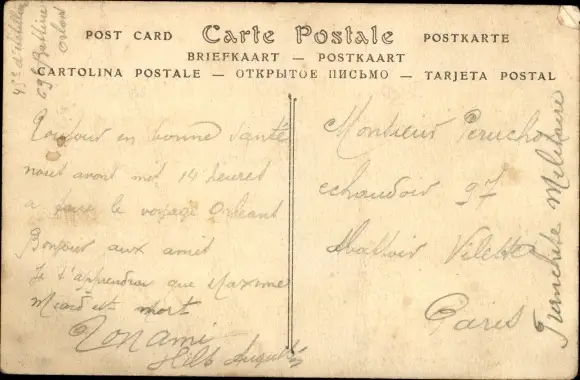 POST CARD Carte Postale POSTKARTE
BRIEFKAART — POSTKAART
CARTOLINA POSTALE — ОТКРЫТОЕ ПИСЬМО — TARJETA POSTAL
45e d'
69e Batterie
Toujour en bonne santé
nout avont met 14 heuret
a faire le voyage Orléant
Bonjour aux amit
Je t'apprendrai que Maxime
est mort
Ton ami
Monsieur
echaudoir 97
Abattoir Vilette
Paris
Franchise Militaire